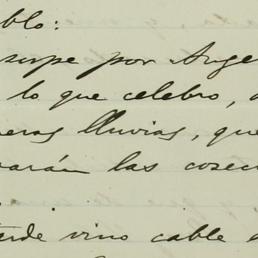 blo:
supe por Ange
lo que celebro, a
meras lluvias, que
varán las cosec
tarde vino cable d